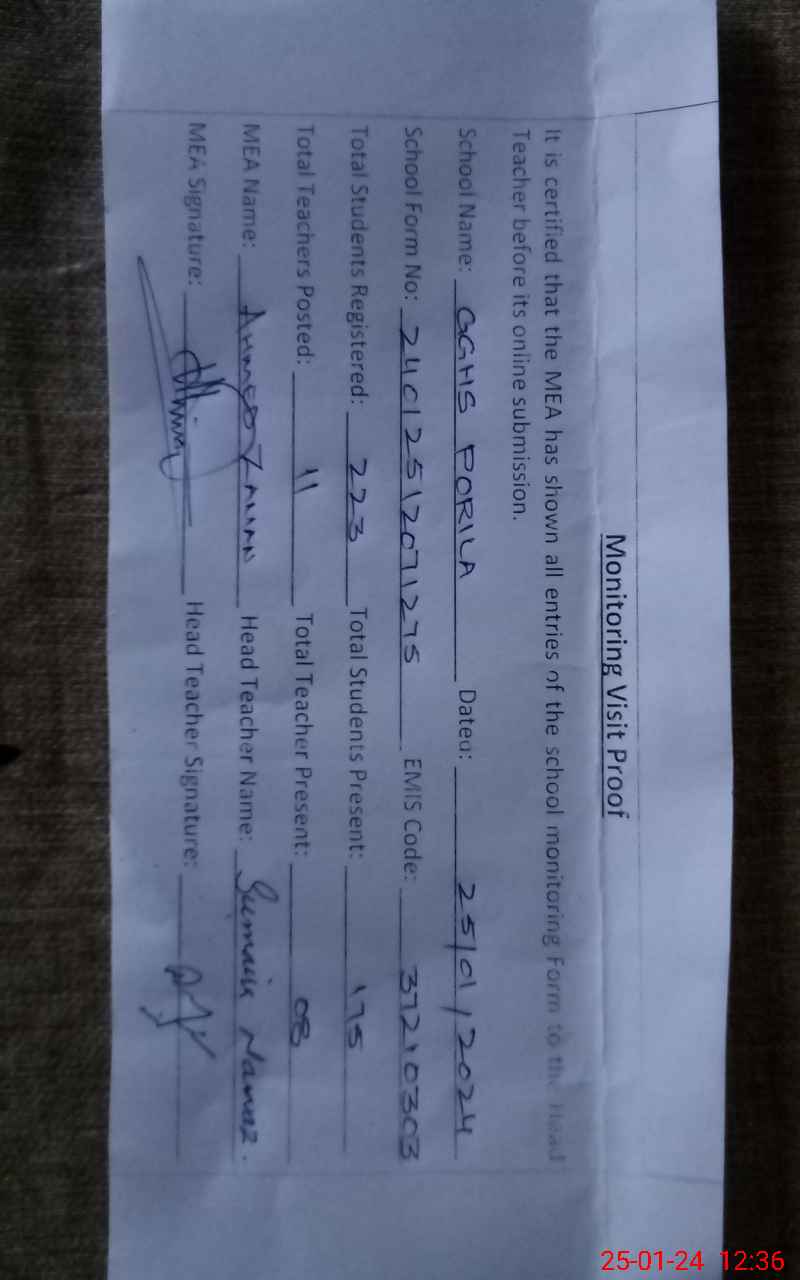 Monitoring Visit Proof
It is certified that the MEA has shown all entries of the school monitoring Form to the Head
Teacher before its online submission.
School Name: GGHS PORILA Dated: 25/01/2024
School Form No: 24012512071275 EMIS Code: 37210303
Total Students Registered: 223 Total Students Present: 175
Total Teachers Posted: 11 Total Teacher Present: 08
MEA Name: AHMED ZAMAN Head Teacher Name: Sumaira Nawaz.
MEA Signature: Head Teacher Signature:
25-01-24 12:36